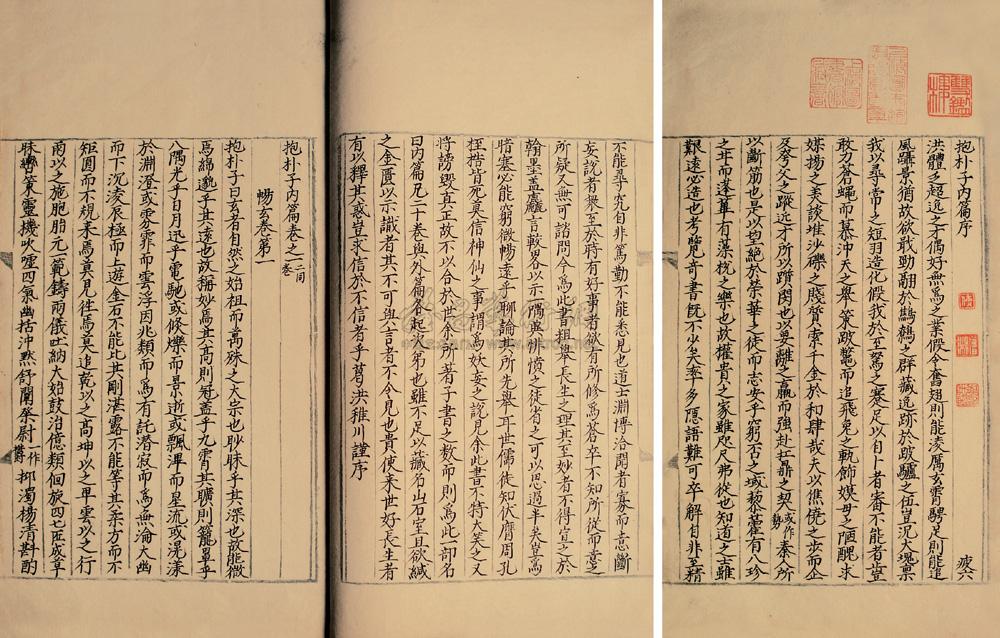 抱朴子内篇序　疲六
洪體乏超逸之才偶好無為之業假令奮翅則能凌厲玄霄騁足則能追
風躡景猶故欲戢勁翮於鷦鷯之群藏逸跡於跛驢之伍豈況大塊稟
我以尋常之短羽造化假我於至駑之蹇足以自卜者審不能者止豈
敢力蒼蠅而慕沖天之舉策跛鱉而追飛兔之軌飾嫫母之陋醜求
媒揚之美談堆沙礫之賤質索千金於和肆哉夫以僬僥之步而企
及夸父之蹤近才所以躓閡也以要離之羸而強赴扛鼎之契或作勢秦人所
以斷筋也是以望絕於榮華之徒而志安乎窮否之域藜藿有八珍
之甘而蓬蓽有藻梲之樂也故權貴之家雖咫尺弗從也知道之士雖
艱遠必造也考覽奇書既不少矣率多隱語難可卒解自非至精
不能尋究自非篤勤不能悉見也道士淵博洽聞者寡而意斷
妄說者衆至於時有好事者欲有所修為蒼卒不知所從而意之
所疑又無可諮問今為此書粗舉長生之理其至妙者不得宣之於
翰墨蓋麤言較畧以示一隅兾悱憤之徒省之可以思過半矣豈為
暗塞必能窮微暢遠乎聊論其所先舉耳世儒徒知伏膺周孔
桎梏皆死莫信神仙之事謂為妖妄之說見余此書不特大笑之又
將謗毀真正故不以合於世余所著子書之數而別為此一部名
曰内篇凡二十卷與外篇各起次第也雖不足以藏名山石室且欲緘
之金匱以示識者其不可與言者不令見也貴使來世好長生者
有以釋其惑豈求信於不信者乎葛洪稚川謹序
抱朴子内篇卷之一二同卷
暢玄卷第一
抱朴子曰玄者自然之始祖而萬殊之大宗也眇昧乎其深也故能微
焉綿邈乎其遠也故稱妙焉其高則冠蓋乎九霄其曠則籠罩乎
八隅光乎日月迅乎電馳或倏爍而景逝或飄滭而星流或滉漾
於淵澄或雰霏而雲浮因兆類而為有託潛寂而為無淪大幽
而下沉凌辰極而上遊金石不能比其剛湛露不能等其柔方而不
矩圓而不規来焉莫見往焉莫追乾以之高坤以之卑雲以之行
雨以之施胞胎元一範鑄兩儀吐納大始鼓冶億類佪旋四七匠成草
昧轡策靈機吹嘘四氣幽括沖默舒闡粲尉一作鬱抑濁揚清斟酌